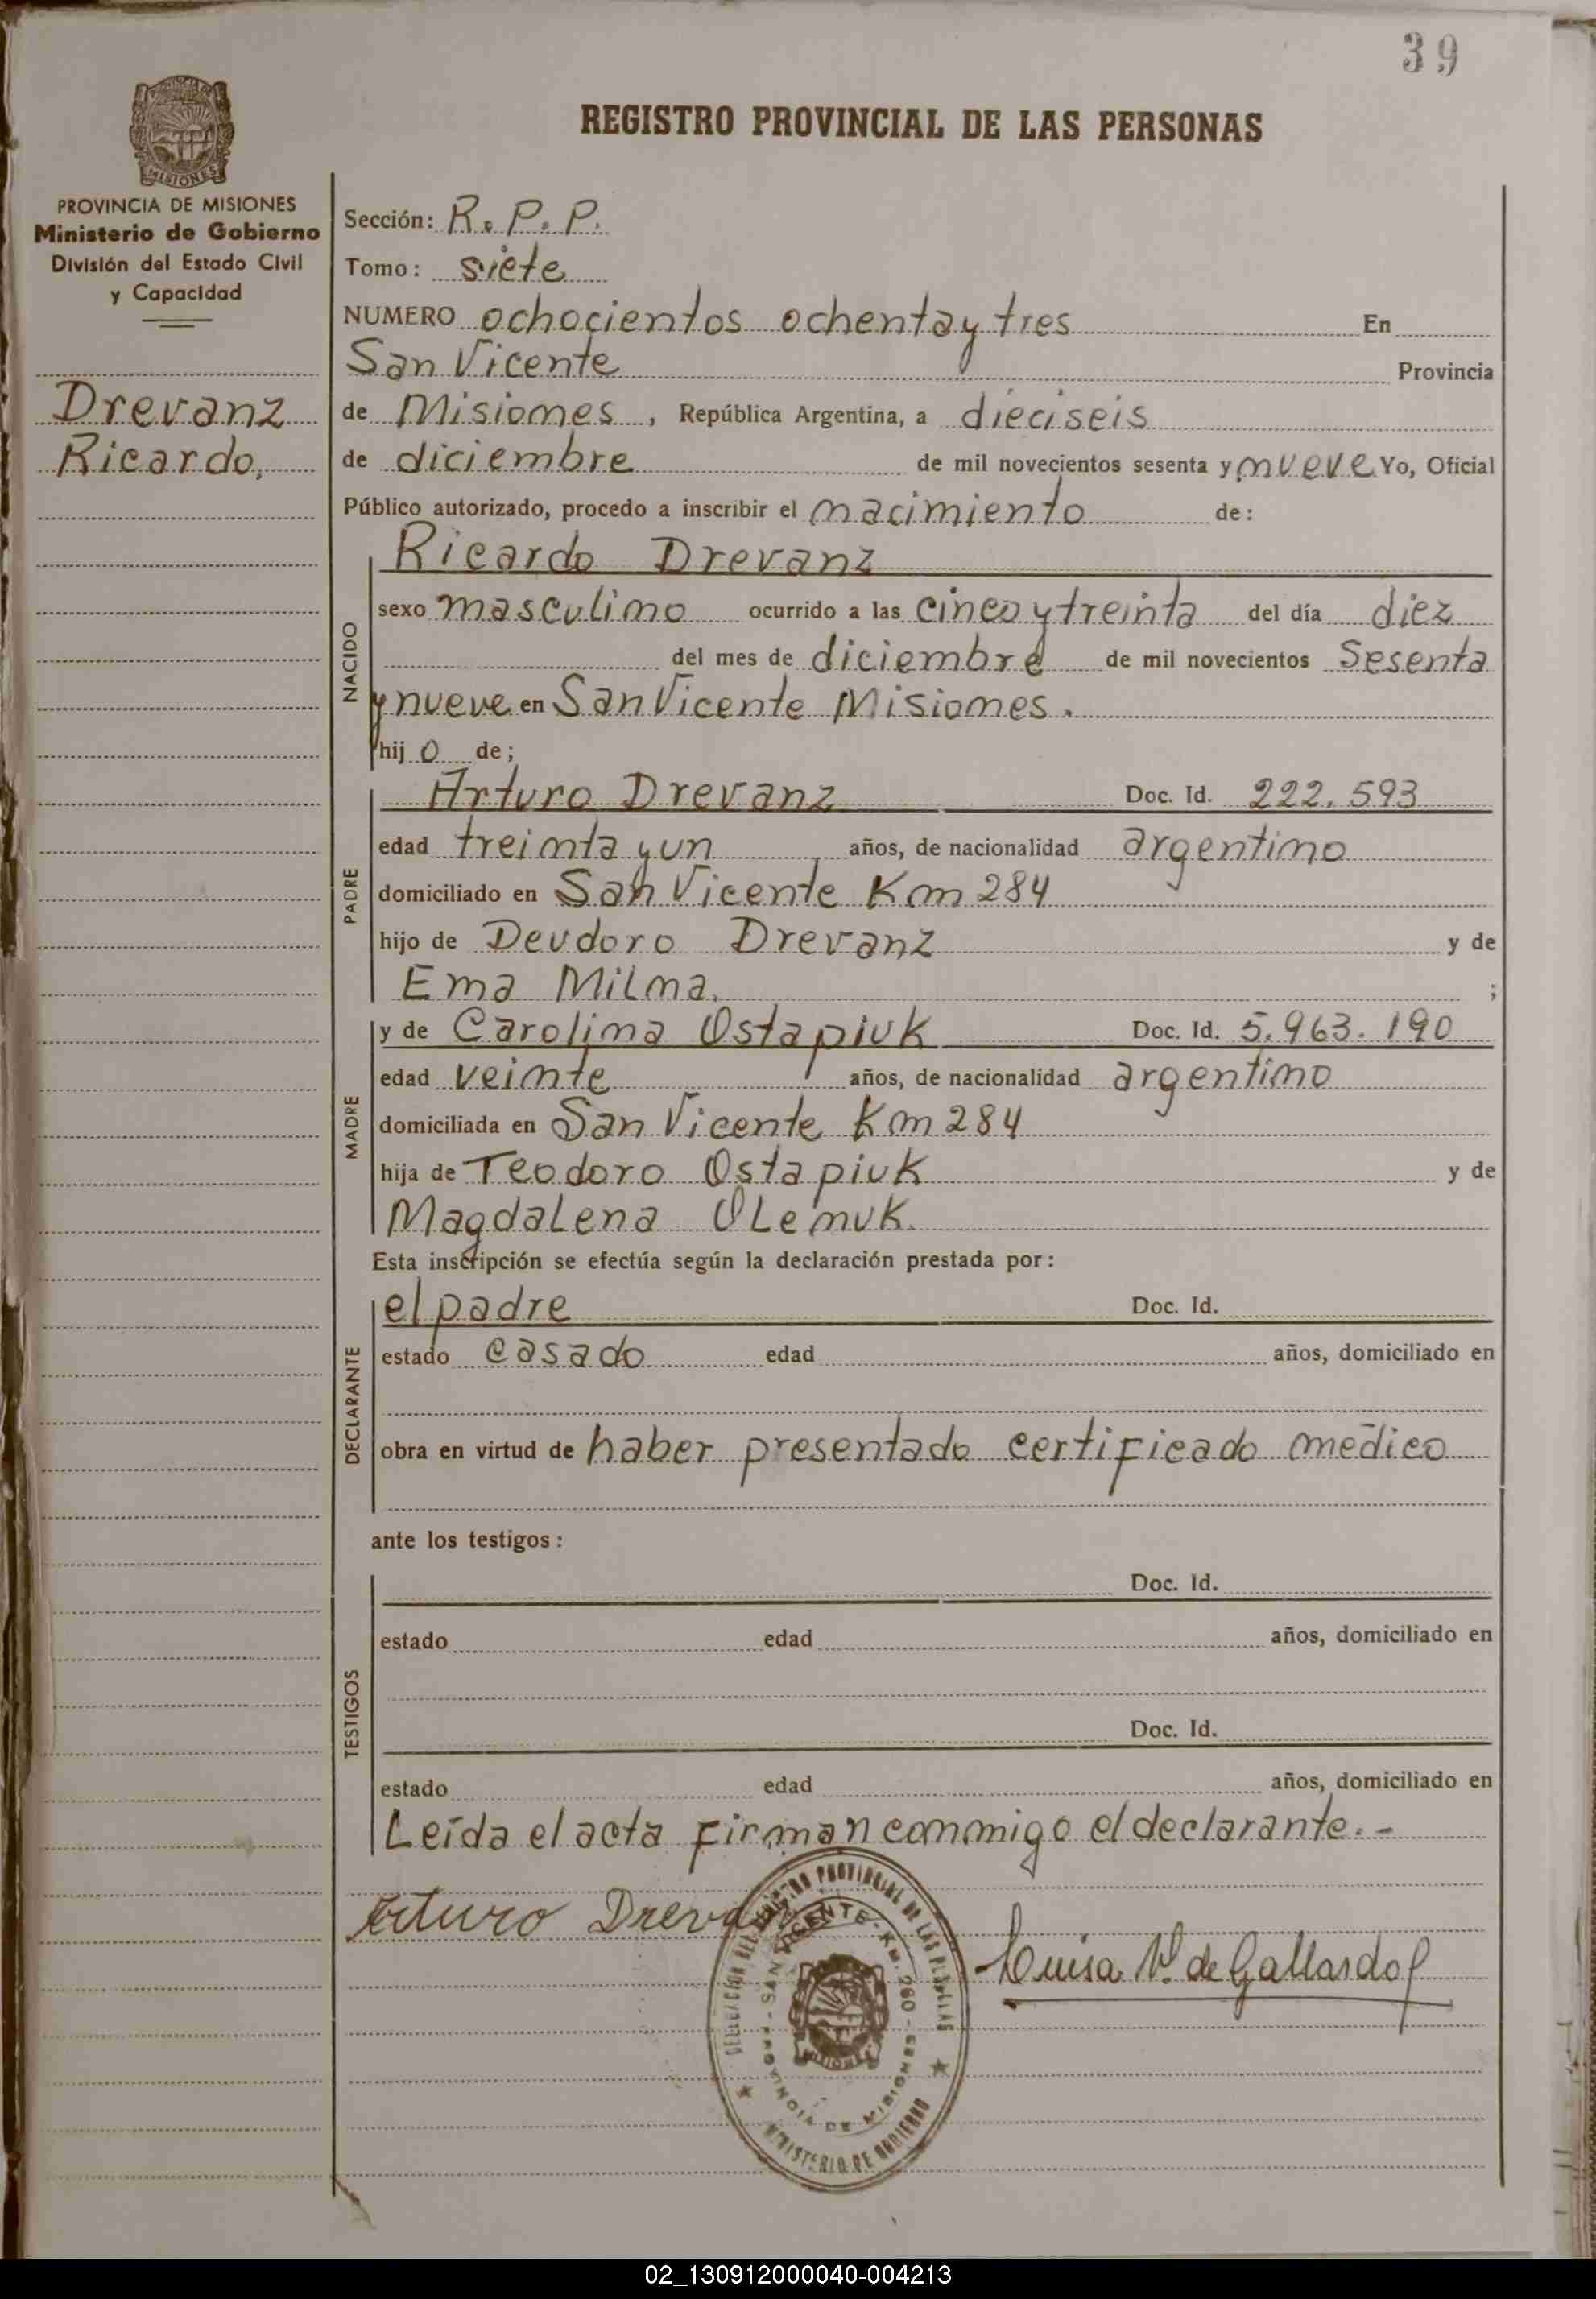 39
REGISTRO PROVINCIAL DE LAS PERSONAS
MISIONES
PROVINCIA DE MISIONES
Ministerio de Gobierno
División del Estado Civil
y Capacidad
Drevanz
Ricardo,
Sección: R. P. P.
Tomo: siete
NUMERO ochocientos ochenta y tres En
San Vicente Provincia
de Misiones, República Argentina, a dieciseis
de diciembre de mil novecientos sesenta y nueve Yo, Oficial
Público autorizado, procedo a inscribir el nacimiento de:
NACIDO
Ricardo Drevanz
sexo masculino ocurrido a las cinco y treinta del día diez
del mes de diciembre de mil novecientos sesenta
y nueve en San Vicente Misiones.
hijo de;
PADRE
Arturo Drevanz Doc. Id. 222.593
edad treinta y un años, de nacionalidad argentino
domiciliado en San Vicente Km 284
hijo de Deudoro Drevanz y de
Ema Milma. ;
MADRE
y de Carolina Ostapiuk Doc. Id. 5.963.190
edad veinte años, de nacionalidad argentino
domiciliada en San Vicente Km 284
hija de Teodoro Ostapiuk y de
Magdalena Olenuk.
Esta inscripción se efectúa según la declaración prestada por:
DECLARANTE
el padre Doc. Id.
estado casado edad años, domiciliado en
obra en virtud de haber presentado certificado medico
ante los testigos:
TESTIGOS
Doc. Id.
estado edad años, domiciliado en
Doc. Id.
estado edad años, domiciliado en
Leída el acta firman conmigo el declarante.-
Arturo Drevanz
Luisa V. de Gallardo
DELEGACION DEL REGISTRO PROVINCIAL DE LAS PERSONAS
SAN VICENTE - KM. 260 - PROVINCIA DE MISIONES
MISIONES
MINISTERIO DE GOBIERNO
02_130912000040-004213